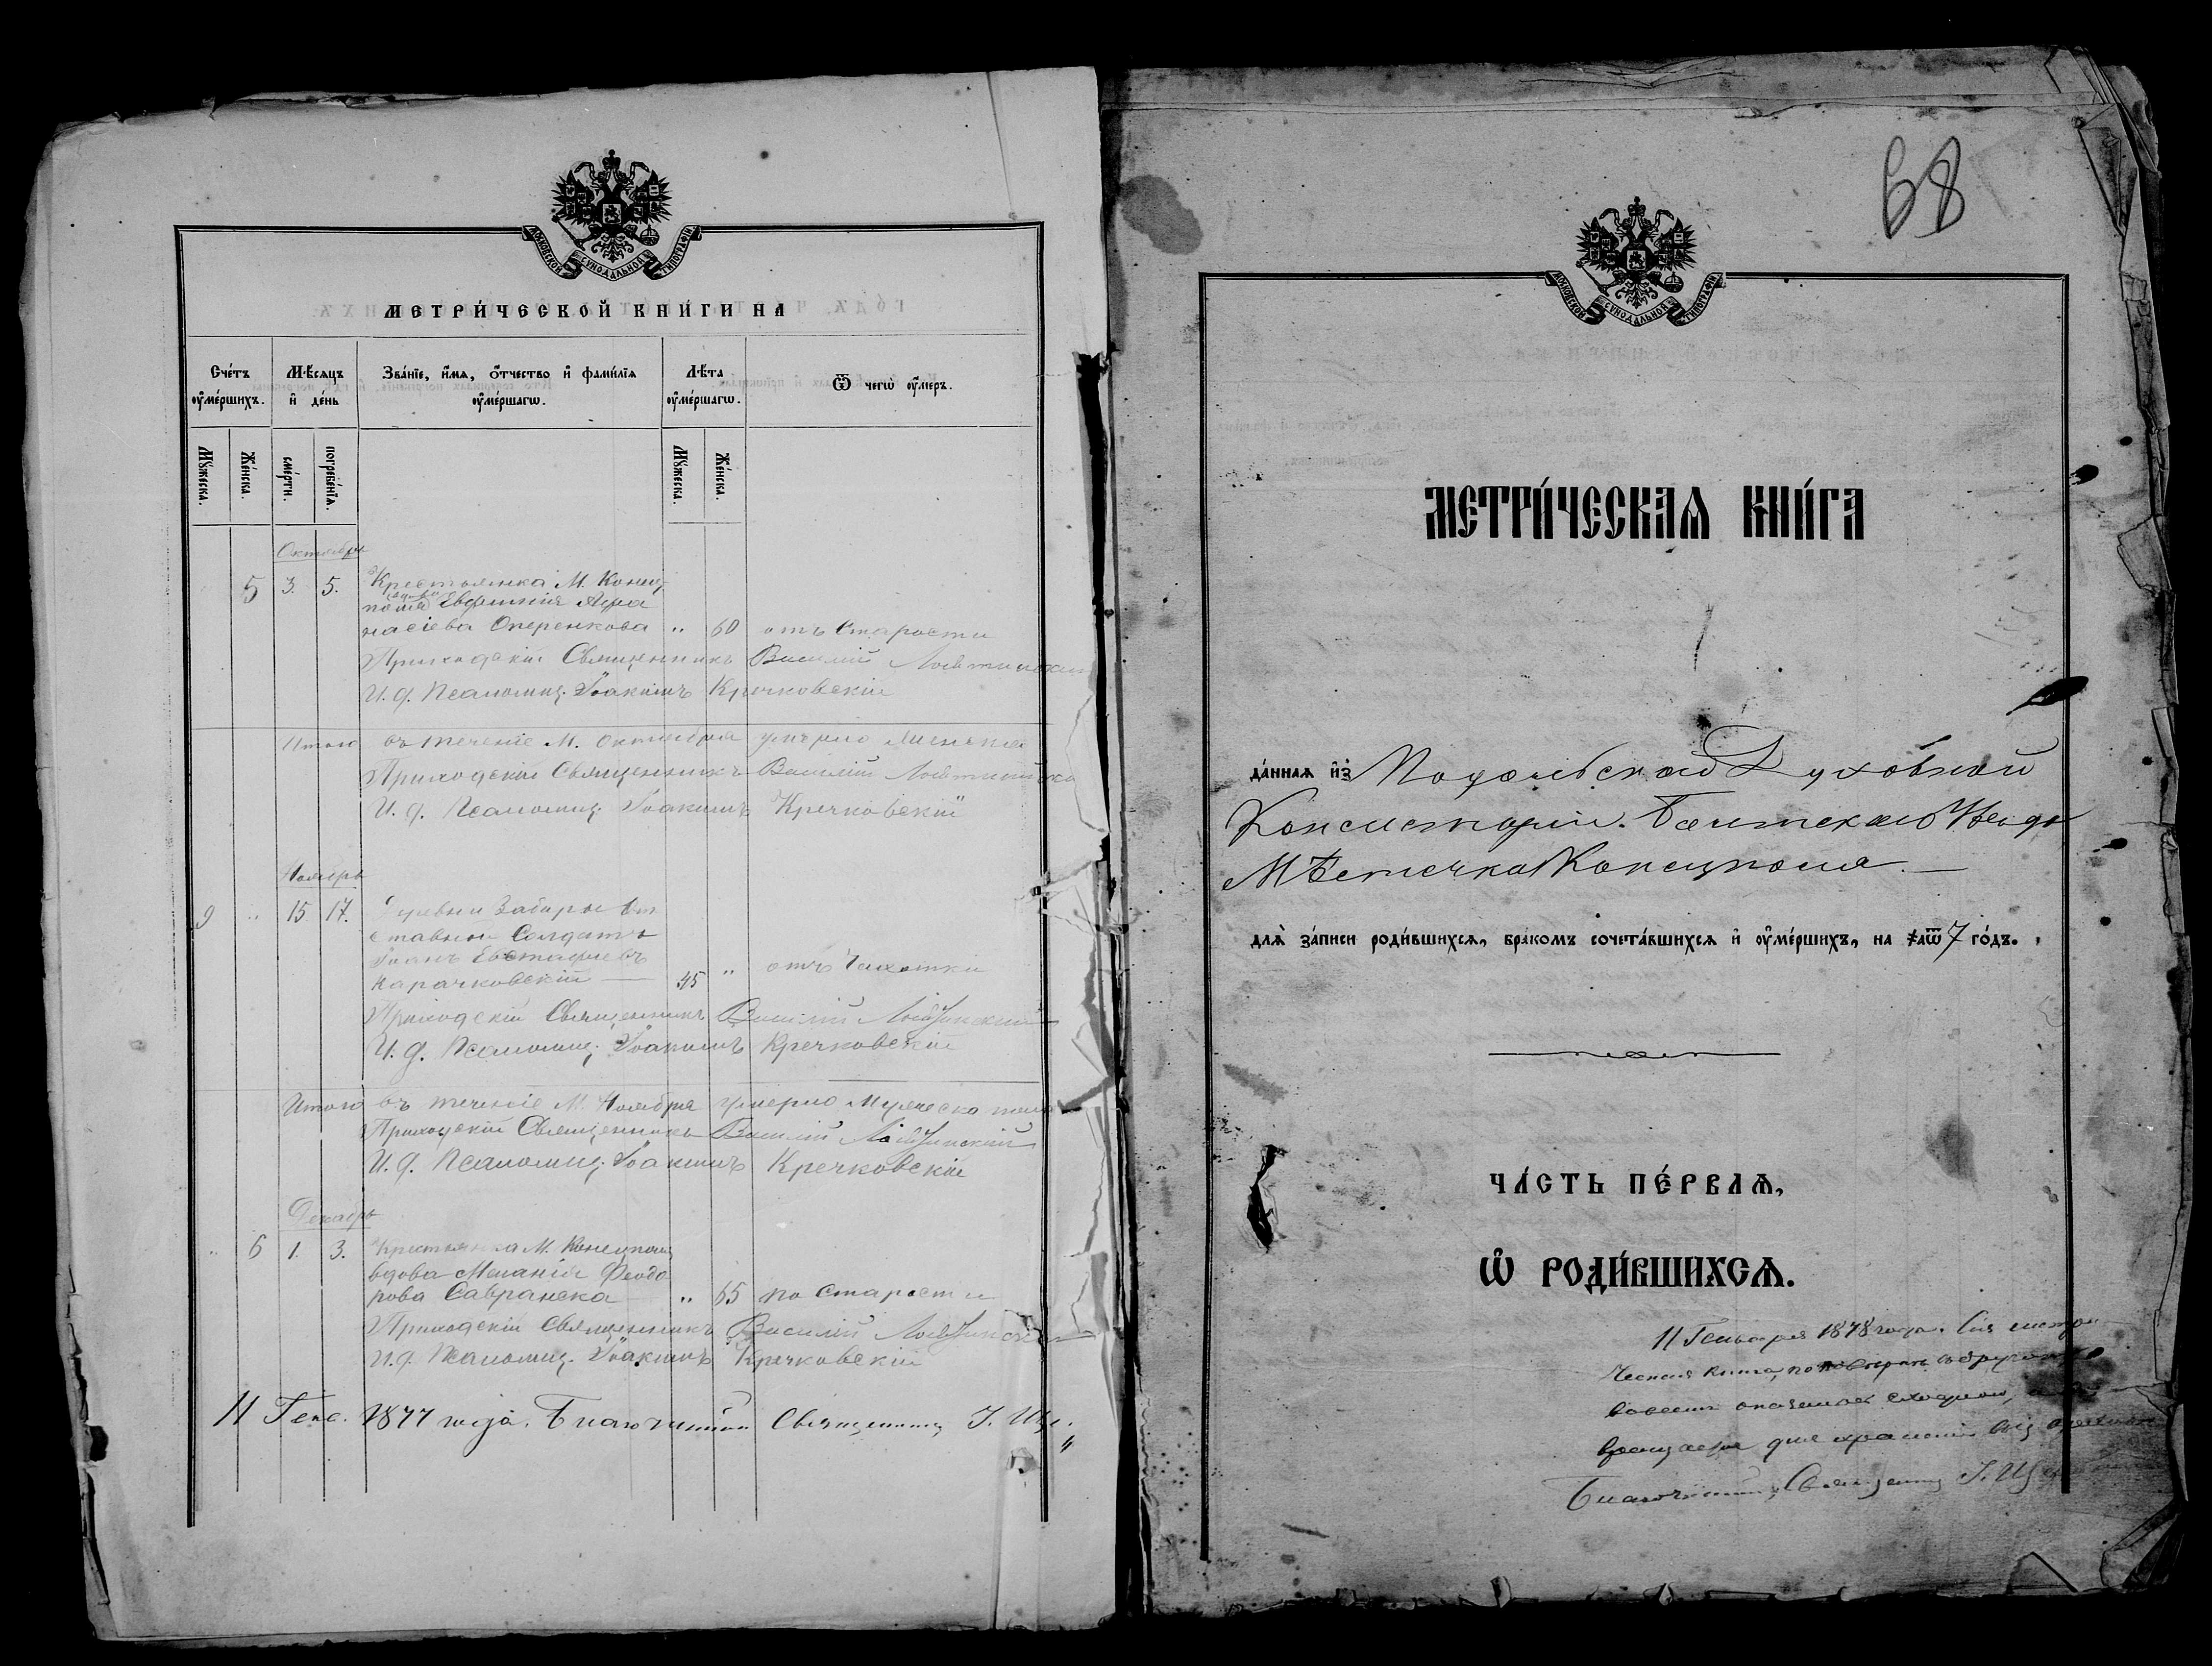 МОСКОВСКОЙ СѴНОДАЛЬНОЙ ТИПОГРАФІИ
МЕТРИ́ЧЕСКОЙ КНИ́ГИ НА
Сче́тъ ᲂу҆ме́ршихъ.
Мѣ́сяцъ и҆ де́нь
Зва́нїе, и҆́мѧ, ѻ҆́тчество и҆ фами́лїѧ ᲂу҆ме́ршагѡ.
Лѣ́та ᲂу҆ме́ршагѡ.
Ѿ чегѡ̀ ᲂу҆́меръ.
Мꙋ́жеска.
Же́нска.
сме́рти.
погребе́нїѧ.
Мꙋ́жеска.
Же́нска.
Октябрь
5 3. 5. Крестьянка М. Конец
поля Евфимія Афа
насіева Оперенкова " 60 отъ Старости
Приходскій Священникъ Василій
И. д. Псаломщ. Іоакимъ Кречковскій
Итого въ теченіе М. Октября умерло
Приходскій Священникъ Василій
И. д. Псаломщ. Іоакимъ Кречковскій
Ноябрь
9 " 15 17. Деревни От
ставный Солдатъ
Іоанъ Евстафіевъ
Карачковскій — 45 " отъ Чахотки
Приходскій Священникъ Василій
И. д. Псаломщ. Іоакимъ Кречковскій
Итого въ теченіе М. Ноября умерло Мужеска пола
Приходскій Священникъ Василій
И. д. Псаломщ. Іоакимъ Кречковскій
Декабрь
" 6 1. 3. Крестьянка М. Конецпол
вдова Меланія Феодо
рова Савранска " 65 по Старости
Приходскій Священникъ Василій
И. д. Псаломщ. Іоакимъ Кречковскій
11 Генв. 1877 года. Благочинный Священникъ І.
68
МОСКОВСКОЙ СѴНОДАЛЬНОЙ ТИПОГРАФІИ
МЕТРИ́ЧЕСКАѦ КНИ́ГА
да́ннаѧ и҆з̾ Подольской Духовной
Консисторіи. Балтскаго Уѣзда
Мѣстечка Конецполя. —
длѧ̀ за́писи роди́вшихсѧ, бра́комъ сочета́вшихсѧ и҆ ᲂу҆ме́ршихъ, на ҂аѿ7 го́дъ.
ЧА́СТЬ ПЕ́РВАѦ,
Ѡ҆ РОДИ́ВШИХСѦ.
11 Генваря 1878 года. Сія метри
ческая книга, по
вращается для храненія
Благочинный, Священникъ І.